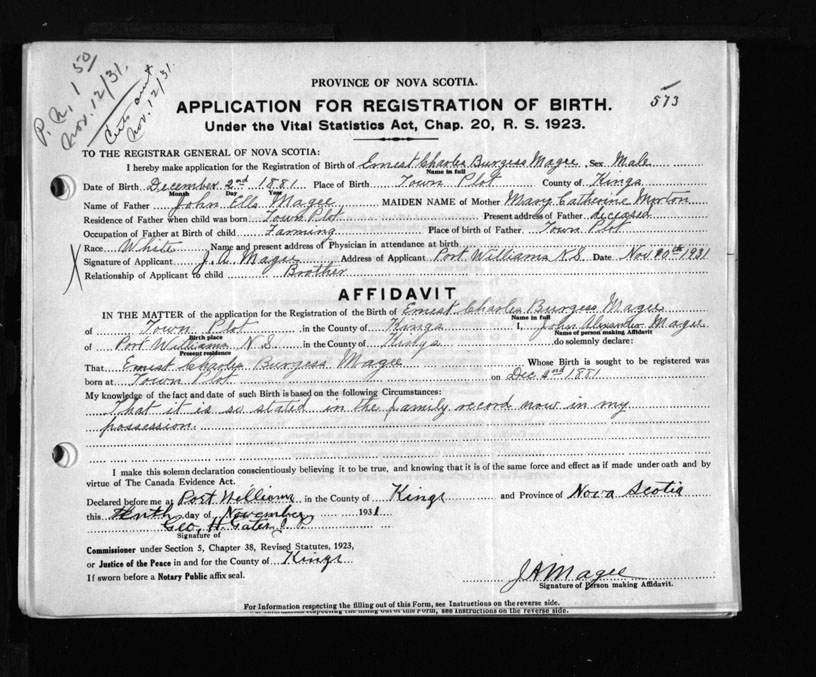 P.N. 1 50
Nov. 12/31.
Certs sent
Nov. 12/31.
573
PROVINCE OF NOVA SCOTIA.
APPLICATION FOR REGISTRATION OF BIRTH.
Under the Vital Statistics Act, Chap. 20, R. S. 1923.
TO THE REGISTRAR GENERAL OF NOVA SCOTIA:
I hereby make application for the Registration of Birth of Ernest Charles Burgess Magee Sex Male
Name in full
Date of Birth December 2nd 1881 Place of Birth Town Plot County of Kings
Month Day Year
Name of Father John Ells Magee MAIDEN NAME of Mother Mary Catherine Morton
Residence of Father when child was born Town Plot Present address of Father deceased
Occupation of Father at Birth of child Farming Place of birth of Father Town Plot
Race White Name and present address of Physician in attendance at birth
X Signature of Applicant J. A. Magee Address of Applicant Port Williams N.S. Date Nov 10th 1931
Relationship of Applicant to child Brother
AFFIDAVIT
IN THE MATTER of the application for the Registration of the Birth of Ernest Charles Burgess Magee
Name in full
of Town Plot in the County of Kings I, John Alexander Magee
Birth place Name of person making Affidavit
of Port Williams N.S. in the County of Kings do solemnly declare:
Present residence
That Ernest Charles Burgess Magee Whose Birth is sought to be registered was
born at Town Plot on Dec 2nd 1881
My knowledge of the fact and date of such Birth is based on the following Circumstances:
That it is so stated in the family record now in my
possession.
I make this solemn declaration conscientiously believing it to be true, and knowing that it is of the same force and effect as if made under oath and by
virtue of The Canada Evidence Act.
Declared before me at Port Williams in the County of Kings and Province of Nova Scotia
this tenth day of November 1931
Geo. H. Gates J. P.
Signature of
Commissioner under Section 5, Chapter 38, Revised Statutes, 1923,
or Justice of the Peace in and for the County of Kings
If sworn before a Notary Public affix seal.
J A Magee
Signature of Person making Affidavit.
For Information respecting the filling out of this Form, see Instructions on the reverse side.
for Information respecting the filling out of this Form, see Instructions on the reverse side.